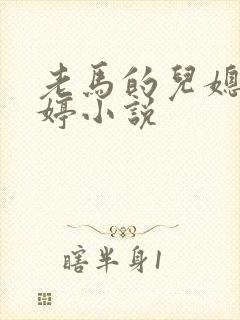 老馬的兒媳
婷小說
瞎半身1